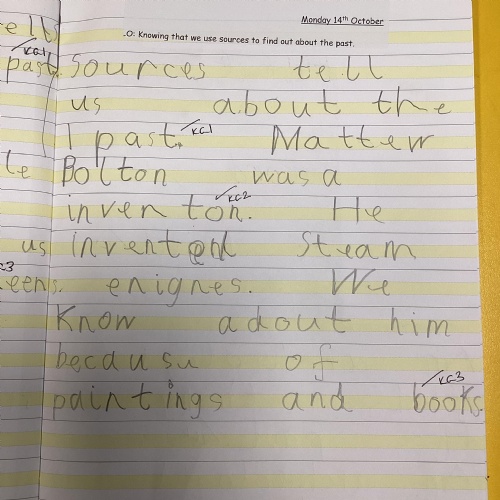 Monday 14th October
.O: Knowing that we use sources to find out about the past.
ell
KC1
past. sources tell
us about the
past. KC1 Mattew
le Bolton was a
inventon. KC2 He
us invented Steam
eens. enignes. We
Know adout him
becausu of
paintings and books. KC3